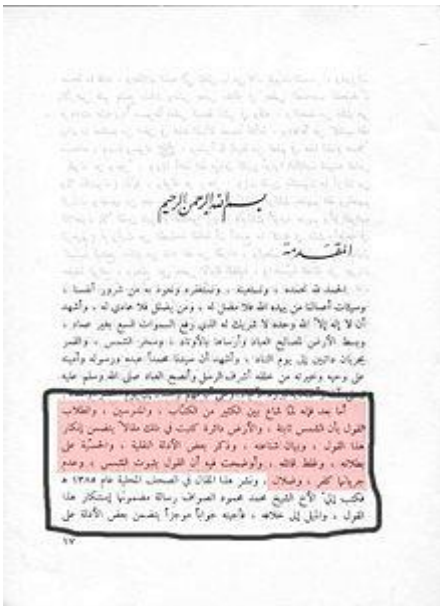 بسم الله الرحمن الرحيم
المقدمة
الحمد لله نحمده ، ونستعينه ، ونستغفره ونعوذ به من شرور أنفسنا ،
وسيئات أعمالنا من يهده الله فلا مضل له ، ومن يضلل فلا هادي له ، وأشهد
أن لا إله إلا الله وحده لا شريك له الذي رفع السموات السبع بغير عماد ،
وبسط الأرض للعباد وأرساها بالأوتاد ، وسخر الشمس ، والقمر
يجريان دائبين إلى يوم التناد ، وأشهد أن سيدنا محمداً عبده ورسوله وأمينه
على وحيه وخيرته من خلقه أشرف الرسل وأنصح العباد صلى الله وسلم عليه
أما بعد فإنه لما شاع بين الكثير من الكتاب ، والمدرسين ، والطلاب
القول بأن الشمس ثابتة ، والأرض دائرة كتبت في ذلك مقالاً يتضمن إنكار
هذا القول ، وبيان شناعته ، وذكر بعض الأدلة النقلية ، والحسية على
بطلانه ، وغلط قائله ، وأوضحت فيه أن القول بثبوت الشمس ، وعدم
جريانها كفر ، وضلال ، ونشر هذا المقال في الصحف المحلية عام ١٣٨٥ هـ
فكتب إلي الأخ الشيخ محمد محمود الصواف رسالة مضمونها إستنكار هذا
القول ، والميل إلى خلافه ، فأجبته جواباً موجزاً يتضمن بعض الأدلة على
١٧